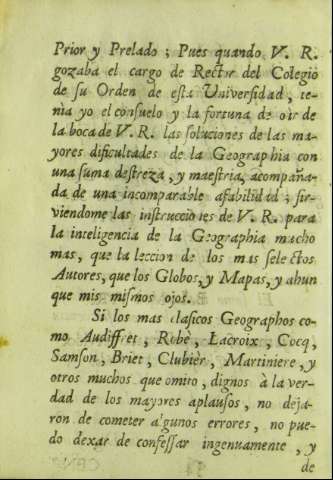 Prior y Prelado ; Pues quando V. R.
gozaba el cargo de Rector del Colegio
de su Orden de esta Universidad , te-
nia yo el consuelo y la fortuna de oir de
la boca de V. R. las soluciones de las ma-
yores dificultades de la Geographia con
una suma destreza , y maestria, acompaña-
da de una incomparable afabilidad ; sir-
viendome las instrucciones de V. R. para
la inteligencia de la Geographia mucho
mas, que la leccion de los mas selectos
Autores, que los Globos, y Mapas, y ahun
que mis mismos ojos.
Si los mas clasicos Geographos co-
mo Audiffret , Robè , Lacroix , Cocq,
Samson, Briet, Clubièr, Martiniere, y
otros muchos que omito , dignos à la ver-
dad de los mayores aplausos , no deja-
ron de cometer algunos errores, no pue-
do dexar de confessar ingenuamente , y
de